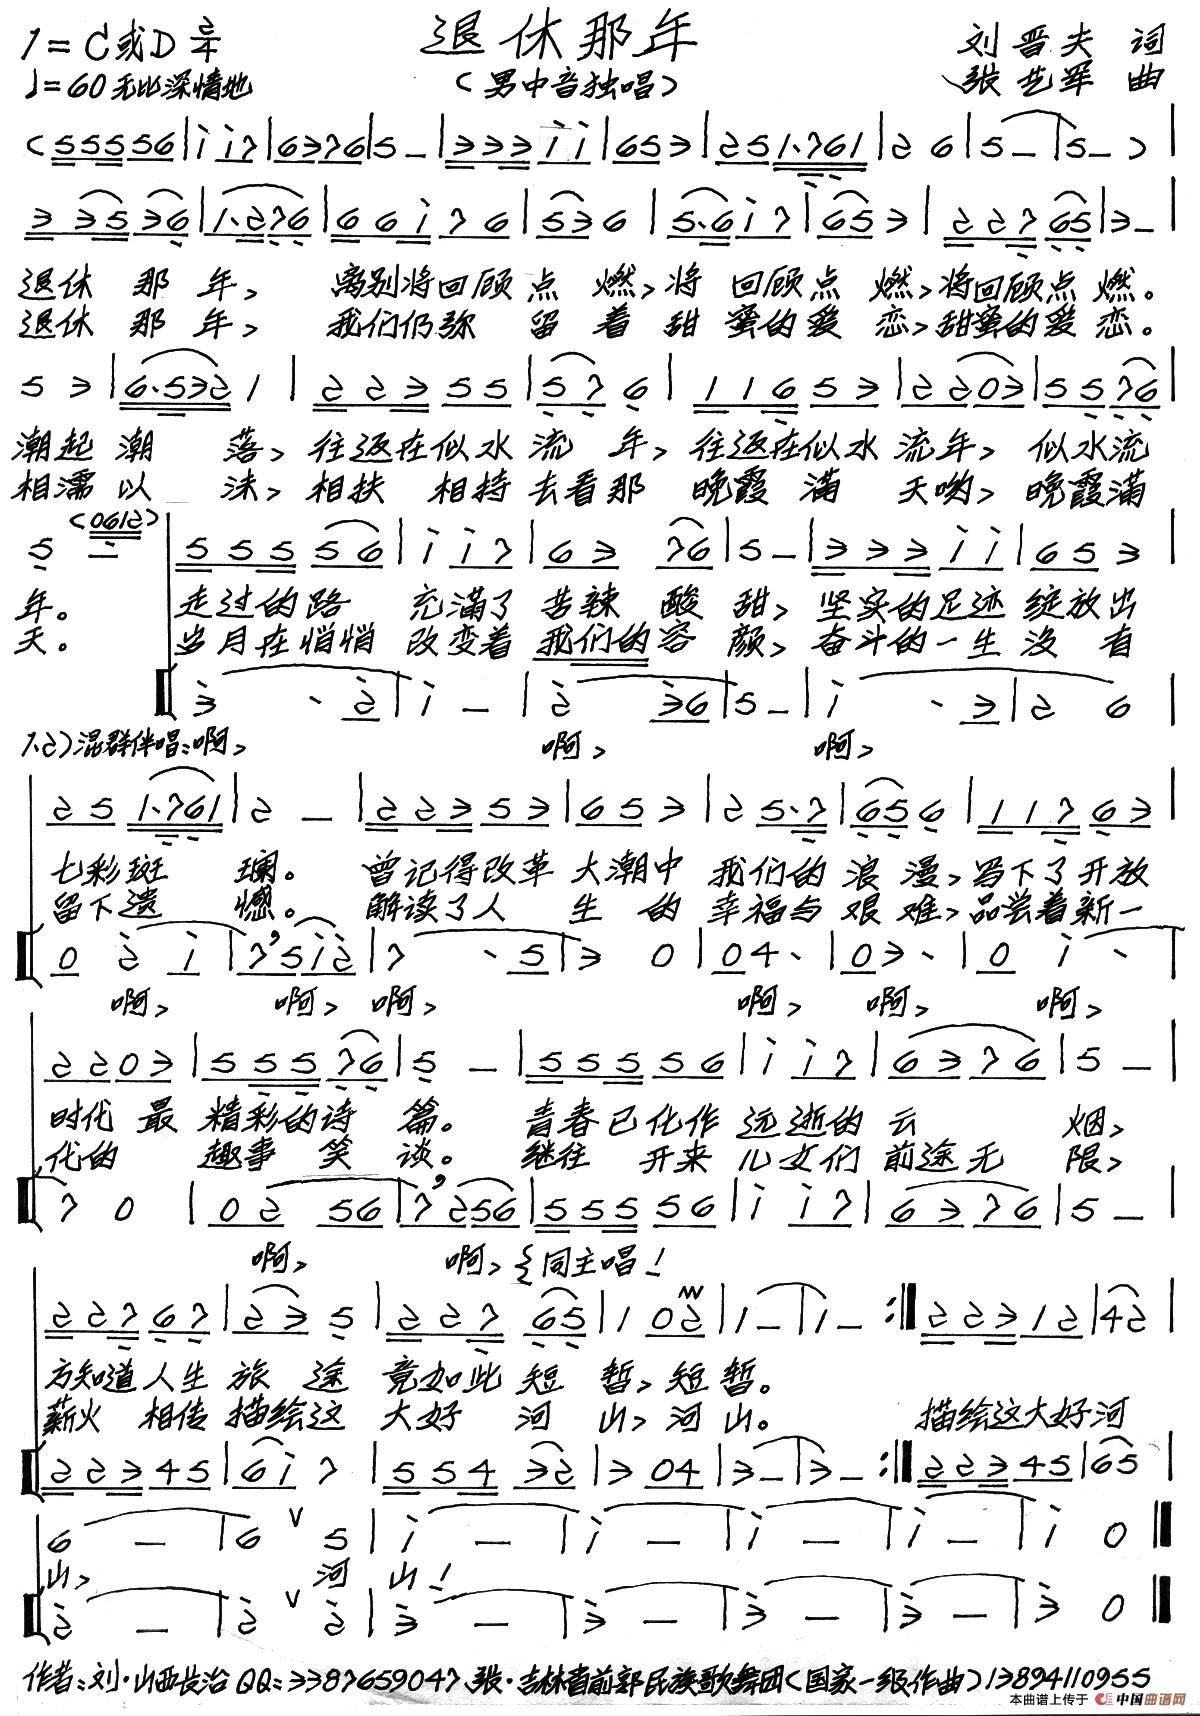 1=C或D 2/4
退休那年
刘晋夫 词
♩=60 无比深情地
(男中音独唱)
张艺军 曲
(55556|i i7|6376|5-|333 i i|653|251.761|2 6|5-|5-)|
3 35 36|1.276|6 6 i 7 6|536|5.6i7|653|22765|3-|
退休 那 年、 离别将回顾点 燃、将 回顾点 燃、将回顾点 燃。
退休 那 年、 我们仍弥 留 着 甜 蜜的爱 恋、甜蜜的爱 恋。
5 3|6.532 1|2 2 3 5 5|5 7 6|1 1 6 5 3|2203|5576|
潮起 潮 落、往返在似水 流 年、往返在似水 流年、 似水流
相濡以 沫、相扶 相持 去看那 晚霞 满 天哟、晚霞满
(0612)
5 -|5 5 5 5 6|i i 7|6 3 76|5-|3 3 3 i i|6 5 3|
年。 走过的路 充满了 苦辣 酸 甜、坚实的足迹 绽放出
天。 岁月在悄悄 改变着 我们的容 颜、奋斗的一生 没 有
3 · 2|i -|2 36|5-|i · 3|2 6|
1.2)混群伴唱:啊、 啊、 啊、
2 5 1.761|2 -|2 2 3 5 3|6 5 3|2 5.7|656|1 1 7 6 3|
七彩斑 斓。 曾记得改革 大潮中 我们的 浪 漫、写下了开放
留下遗 憾。 解读了人 生 的 幸福与 艰 难、品尝着新一
0 2 i|7’5i2|7 · 5|3 0|04·|03·|0 i ·|
啊、 啊、 啊、 啊、 啊、 啊、
2203|55576|5 -|55556|i i 7|6376|5 -|
时代 最 精彩的诗 篇。 青春已化作 远逝的 云 烟、
代的 趣事 笑 谈。 继往 开来 儿女们 前途无 限、
7 0|0 2 56|7’256|55556|i i7|6376|5-|
啊、 啊、{同主唱!
22767|23 5|227 65|1 02|1-|1-:||22312|42|
方知道人生 旅 途 竟如此 短 暂、短暂。
薪火 相传 描绘这 大好 河 山、河山。 描绘这大好河
22345|6i 7|554 32|3 04|3-|3-:||22345|65|
6 -|6 ∨ 5|i -|i -|i -|i -|i 0||
山、 河 山!
2 -|2 ∨ 2|3 -|3 -|3 -|3 -|3 0||
作者:刘·山西长治 QQ:3387659047、张·吉林省前郭民族歌舞团(国家一级作曲)13894110955
本曲谱上传于 中国曲谱网